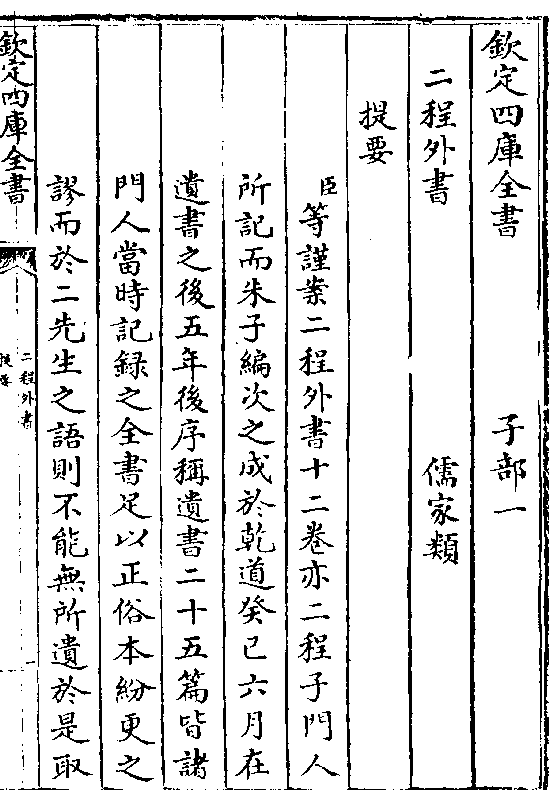 欽定四庫全書 子部一
二程外書 儒家類
提要
臣等謹案二程外書十二卷亦二程子門人
所記而朱子編次之成於乾道癸巳六月在
遺書之後五年後序稱遺書二十五篇皆諸
門人當時記録之全書足以正俗本紛更之
謬而於二先生之語則不能無所遺於是取
欽定四庫全書
二程外書
提要